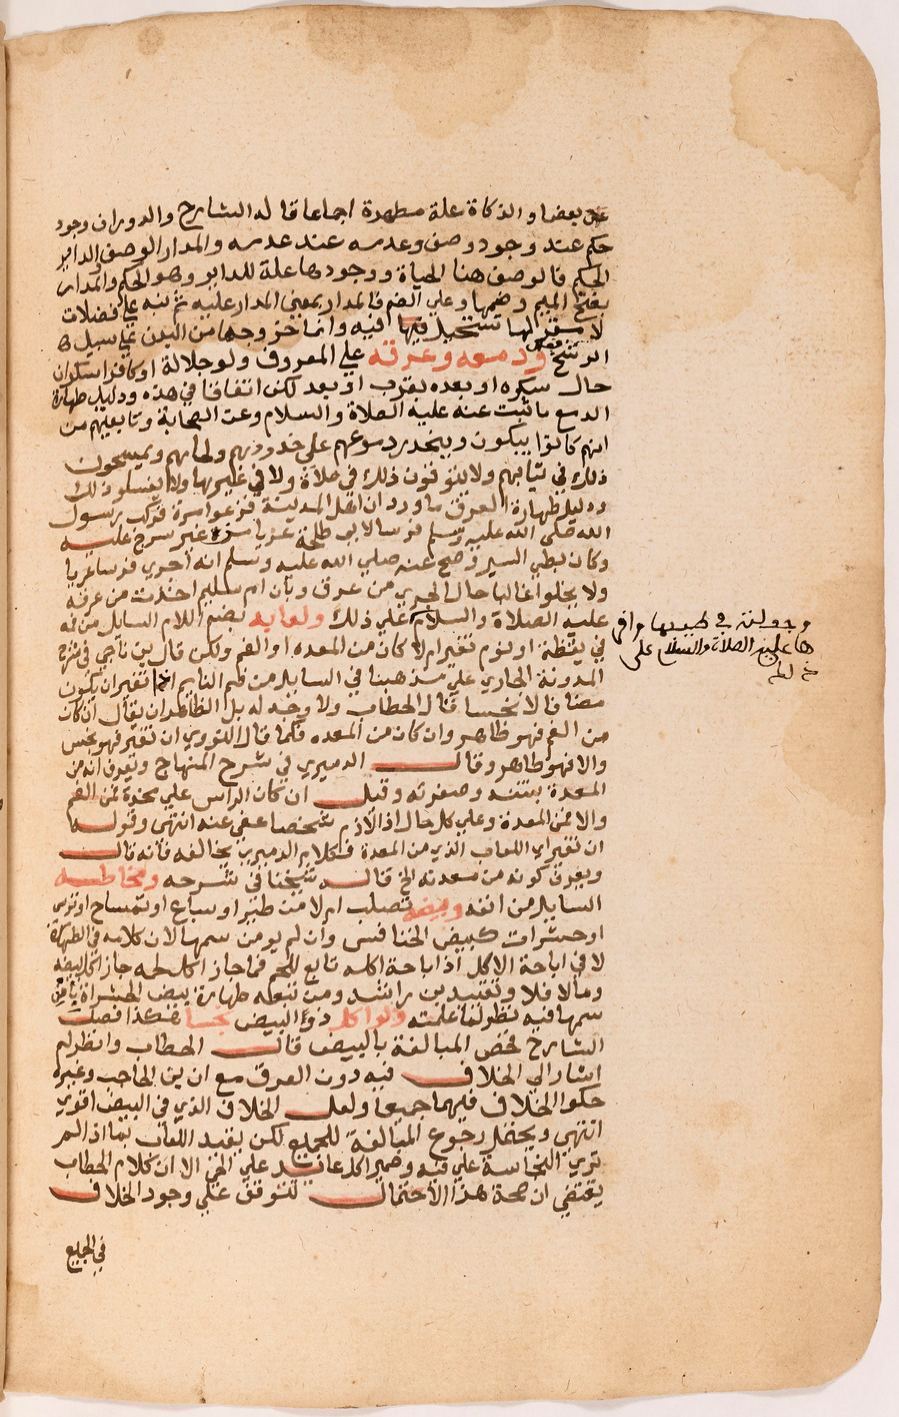 عن بعضا والذكاة علة مطهرة اجماعا قاله الشارح والدوران وجود
حكم عند وجود وصف وعدمه عند عدمه والمدار الوصف والداير
الحكم فالوصف هنا الحياة ووجودها علة للداير وهو الحكم والمدار
بفتح الميم وضمها وعلي الضم فالمدار بمعني المدار عليه ثم نبه علي فضلات
لا مقر لها تستحيل فيها فيه وانما خروجها من البدن علي سبيل
الرشح فقال ودمعه وعرقه علي المعروف ولو جلالة او كافرا سكران
حال سكره او بعده بقرب او بعد لكن اتفاقا في هذه ودليل طهارة
الدمع ما ثبت عنه عليه الصلاة والسلام وعن الصحابة وتابعيهم من
انهم كانوا يبكون وينحدر دموعهم علي خدودهم ولحاهم ويمسحون
ذلك في ثيابهم ولا يتوقون ذلك في صلاة ولا في غيرها ولا يغسلو ذلك
ودليل طهارة العرق ما ورد ان اهل المدينة فزعوا مرة فركب رسول
الله صلي الله عليه وسلم فرسا لابي طلحة عريا من غير سرج عليه
وكان بطي السير وصح عنه صلي الله عليه وسلم انه اجري فرسا عريا
ولا يخلوا غالبا حال الجري من عرق وبان ام سليم اخذت من عرقه
عليه الصلاة والسلام علي ذلك ولعابه بضم اللام السايل من فمه
وجعلته في طيبها واقر
ها عليه الصلاة والسلام علي
في يقظة او نوم تغير ام لا كان من المعده او الفم ولكن قال بن ناجي في شرح
المدونة الجاري علي مذهبنا في السايل من فم النايم اذا تغير ان يكون
مضافا لا نجسا قال الحطاب ولا وجه له بل الظاهر ان يقال ان كان
من الفم فهو طاهر وان كان من المعده فكما قال النووي ان تغير فهو نجس
والا فهو طاهر وقال الدميري في شرح المنهاج ويعرف انه من
المعدة بنتنه وصفرته وقيل ان كان الراس علي مخدة فمن الفم
والا فمن المعدة وعلي كل حال اذا لازم شخصا عفي عنه انتهي وقوله
ان تغير اي اللعاب الذي من المعدة فكلام الدميري يخالفه فانه قال
ويعرف كونه من معدته الخ قال شيخنا في شرحه ومخاطه
السايل من انفه وبيضه تصلب ام لا من طير او سباع او تمساح او ترس
او حشرات كبيض الخنافس وان لم يومن سمها لان كلامه في الطهارة
لا في اباحة الاكل اذ اباحة اكله تابع للحم فما جاز اكل لحمه جاز اكل بيضه
وما لا فلا وتقييد بن راشد ومن تبعه طهارة بيض الحشراة بامن
سمها فيه نظر لما علمته ولو اكل ذو البيض نجسا هكذا فصلت
الشارح فخص المبالغة بالبيض قال الحطاب وانظر لم
اشار الي الخلاف فيه دون العرق مع ان بن الحاجب وغيره
حكوا الخلاف فيهما جميعا ولعل الخلاف الذي في البيض اقوي
انتهي ويحتمل رجوع المبالغة للجميع لكن بقيد اللعاب بما اذا لم
تري النجاسة علي فيه وضمير اكل عايد علي الحي الا ان كلام الحطاب
يقتضي ان صحة هذا الاحتمال تتوقف علي وجود الخلاف
في الجميع